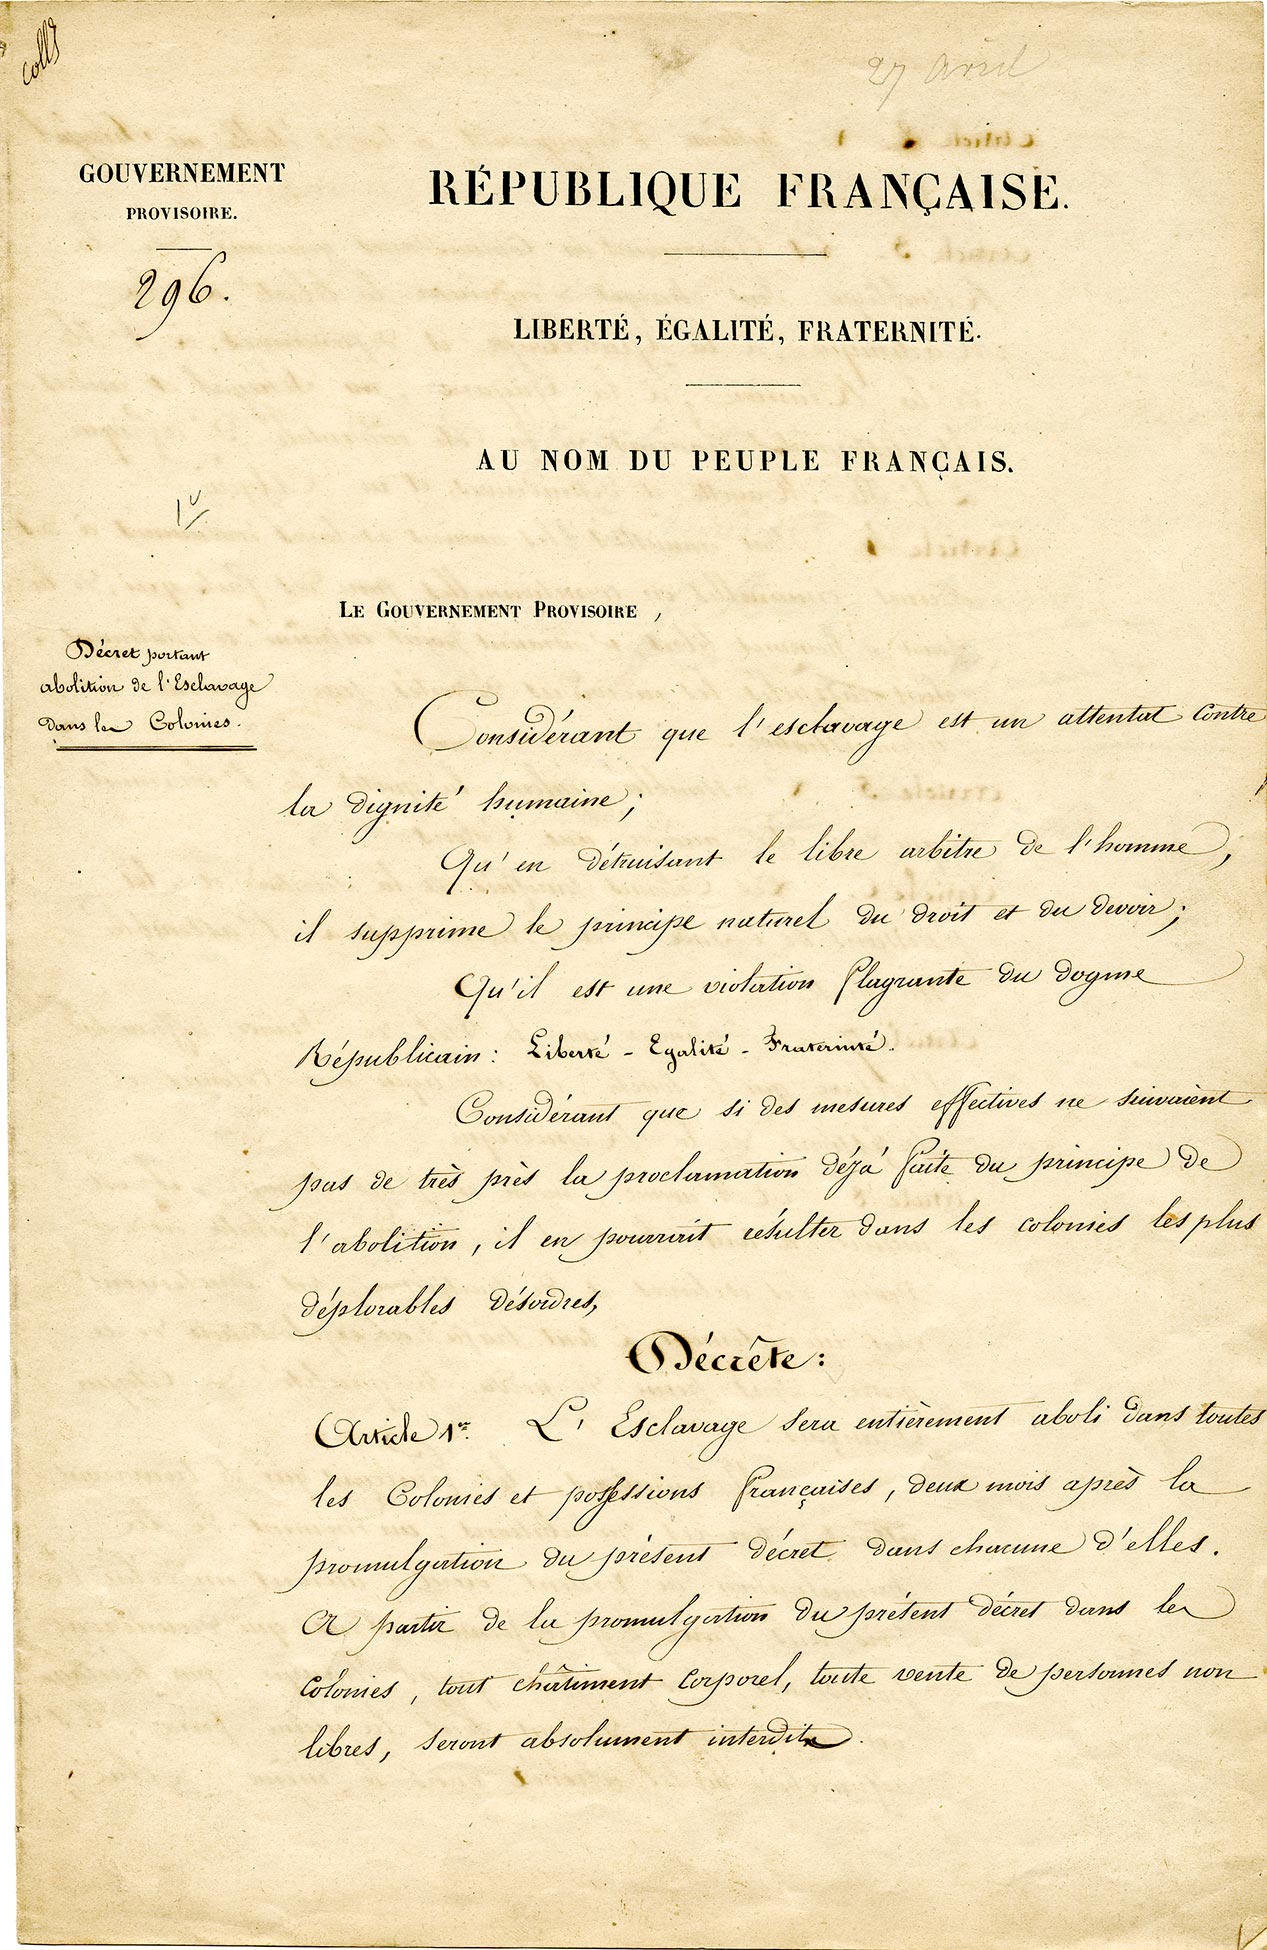 collé
27 avril
GOUVERNEMENT
PROVISOIRE.
296.
RÉPUBLIQUE FRANÇAISE.
LIBERTÉ, ÉGALITÉ, FRATERNITÉ.
AU NOM DU PEUPLE FRANÇAIS.
LE GOUVERNEMENT PROVISOIRE,
Décret portant
abolition de l'Esclavage
dans les Colonies.
Considérant que l'esclavage est un attentat contre
la dignité humaine;
Qu'en détruisant le libre arbitre de l'homme,
il supprime le principe naturel du droit et du devoir;
Qu'il est une violation flagrante du dogme
Républicain: Liberté - Egalité - Fraternité.
Considérant que si des mesures effectives ne suivaient
pas de très près la proclamation déjà faite du principe de
l'abolition, il en pourrait résulter dans les colonies les plus
déplorables désordres,
Décrète:
Article 1er. L'Esclavage sera entièrement aboli dans toutes
les Colonies et possessions françaises, deux mois après la
promulgation du présent décret dans chacune d'elles.
A partir de la promulgation du présent décret dans les
Colonies, tout châtiment corporel, toute vente de personnes non
libres, seront absolument interdits.